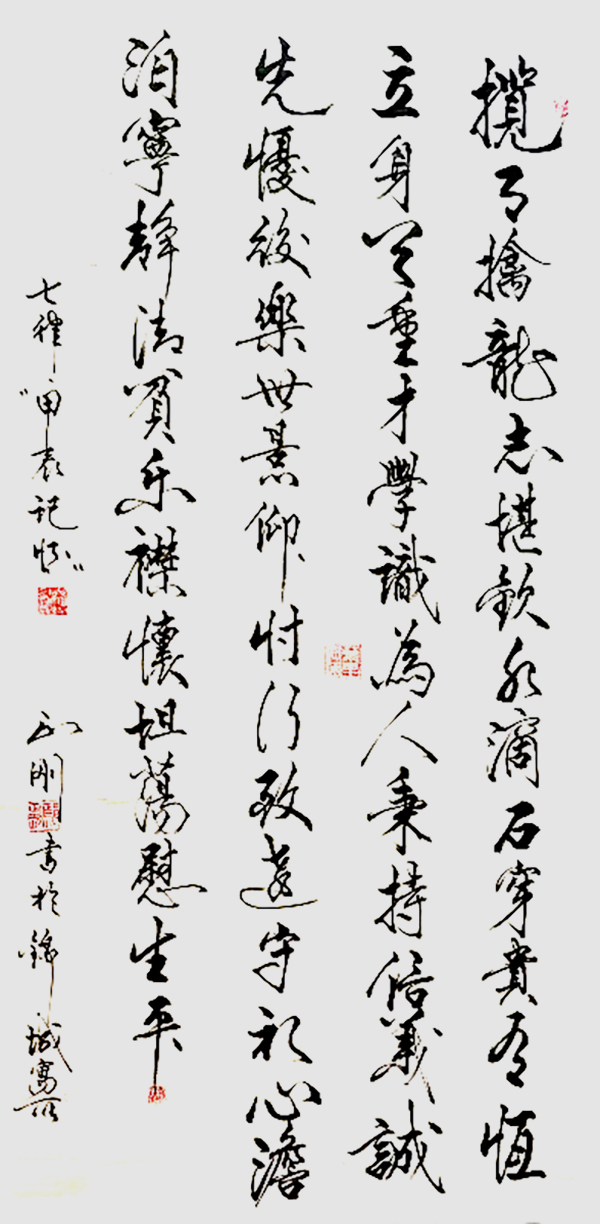 攬月擒龍志堪欽水滴石穿貴有恆
立身重才學識為人秉持信義誠
先懮後樂世景仰忖行致遠守初心澹
泊寧靜清貧樂襟懷坦蕩慰生平
七律
剛書於錦城寓所